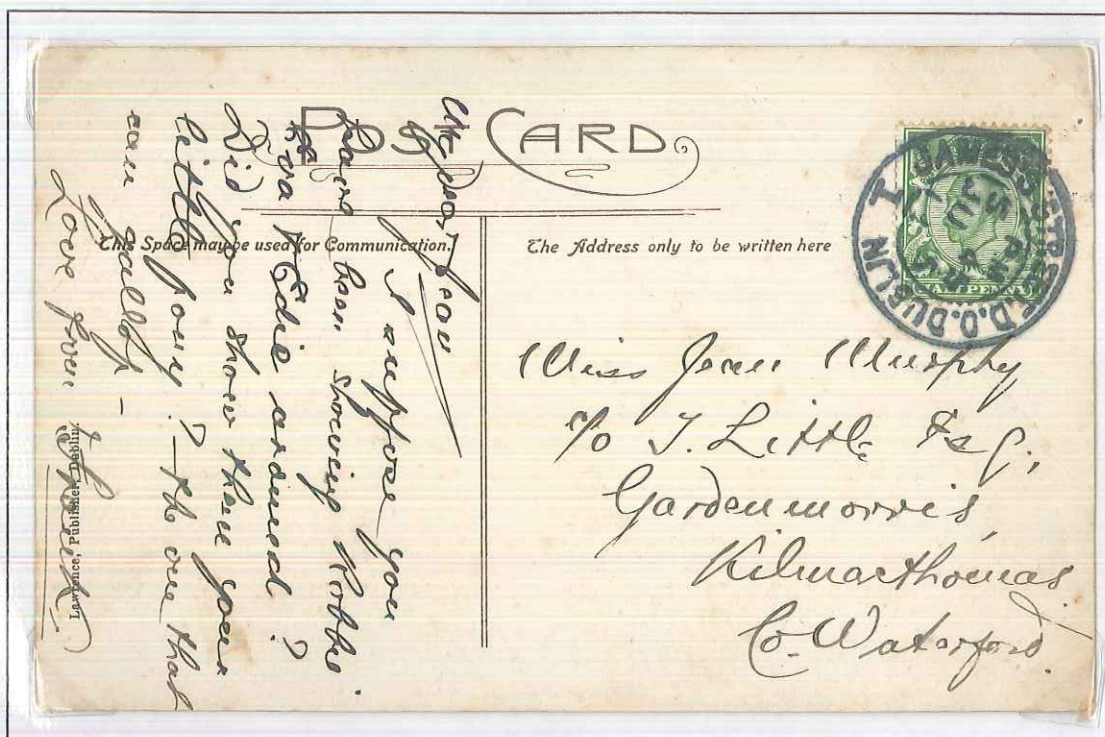 POST CARD
This Space may be used for Communication.
The Address only to be written here
JAMES'S STREET. D.O. DUBLIN
HALFPENNY
My dear Jean
I suppose you
have been showing Robbie
Eva & Edie around?
Did you show them your
little pony? – the one that
can gallop –
Love from
Miss Jean Murphy
c/o J. Little Esq.,
Gardenmorris,
Kilmacthomas
Co. Waterford.
Lawrence, Publisher, Dublin.